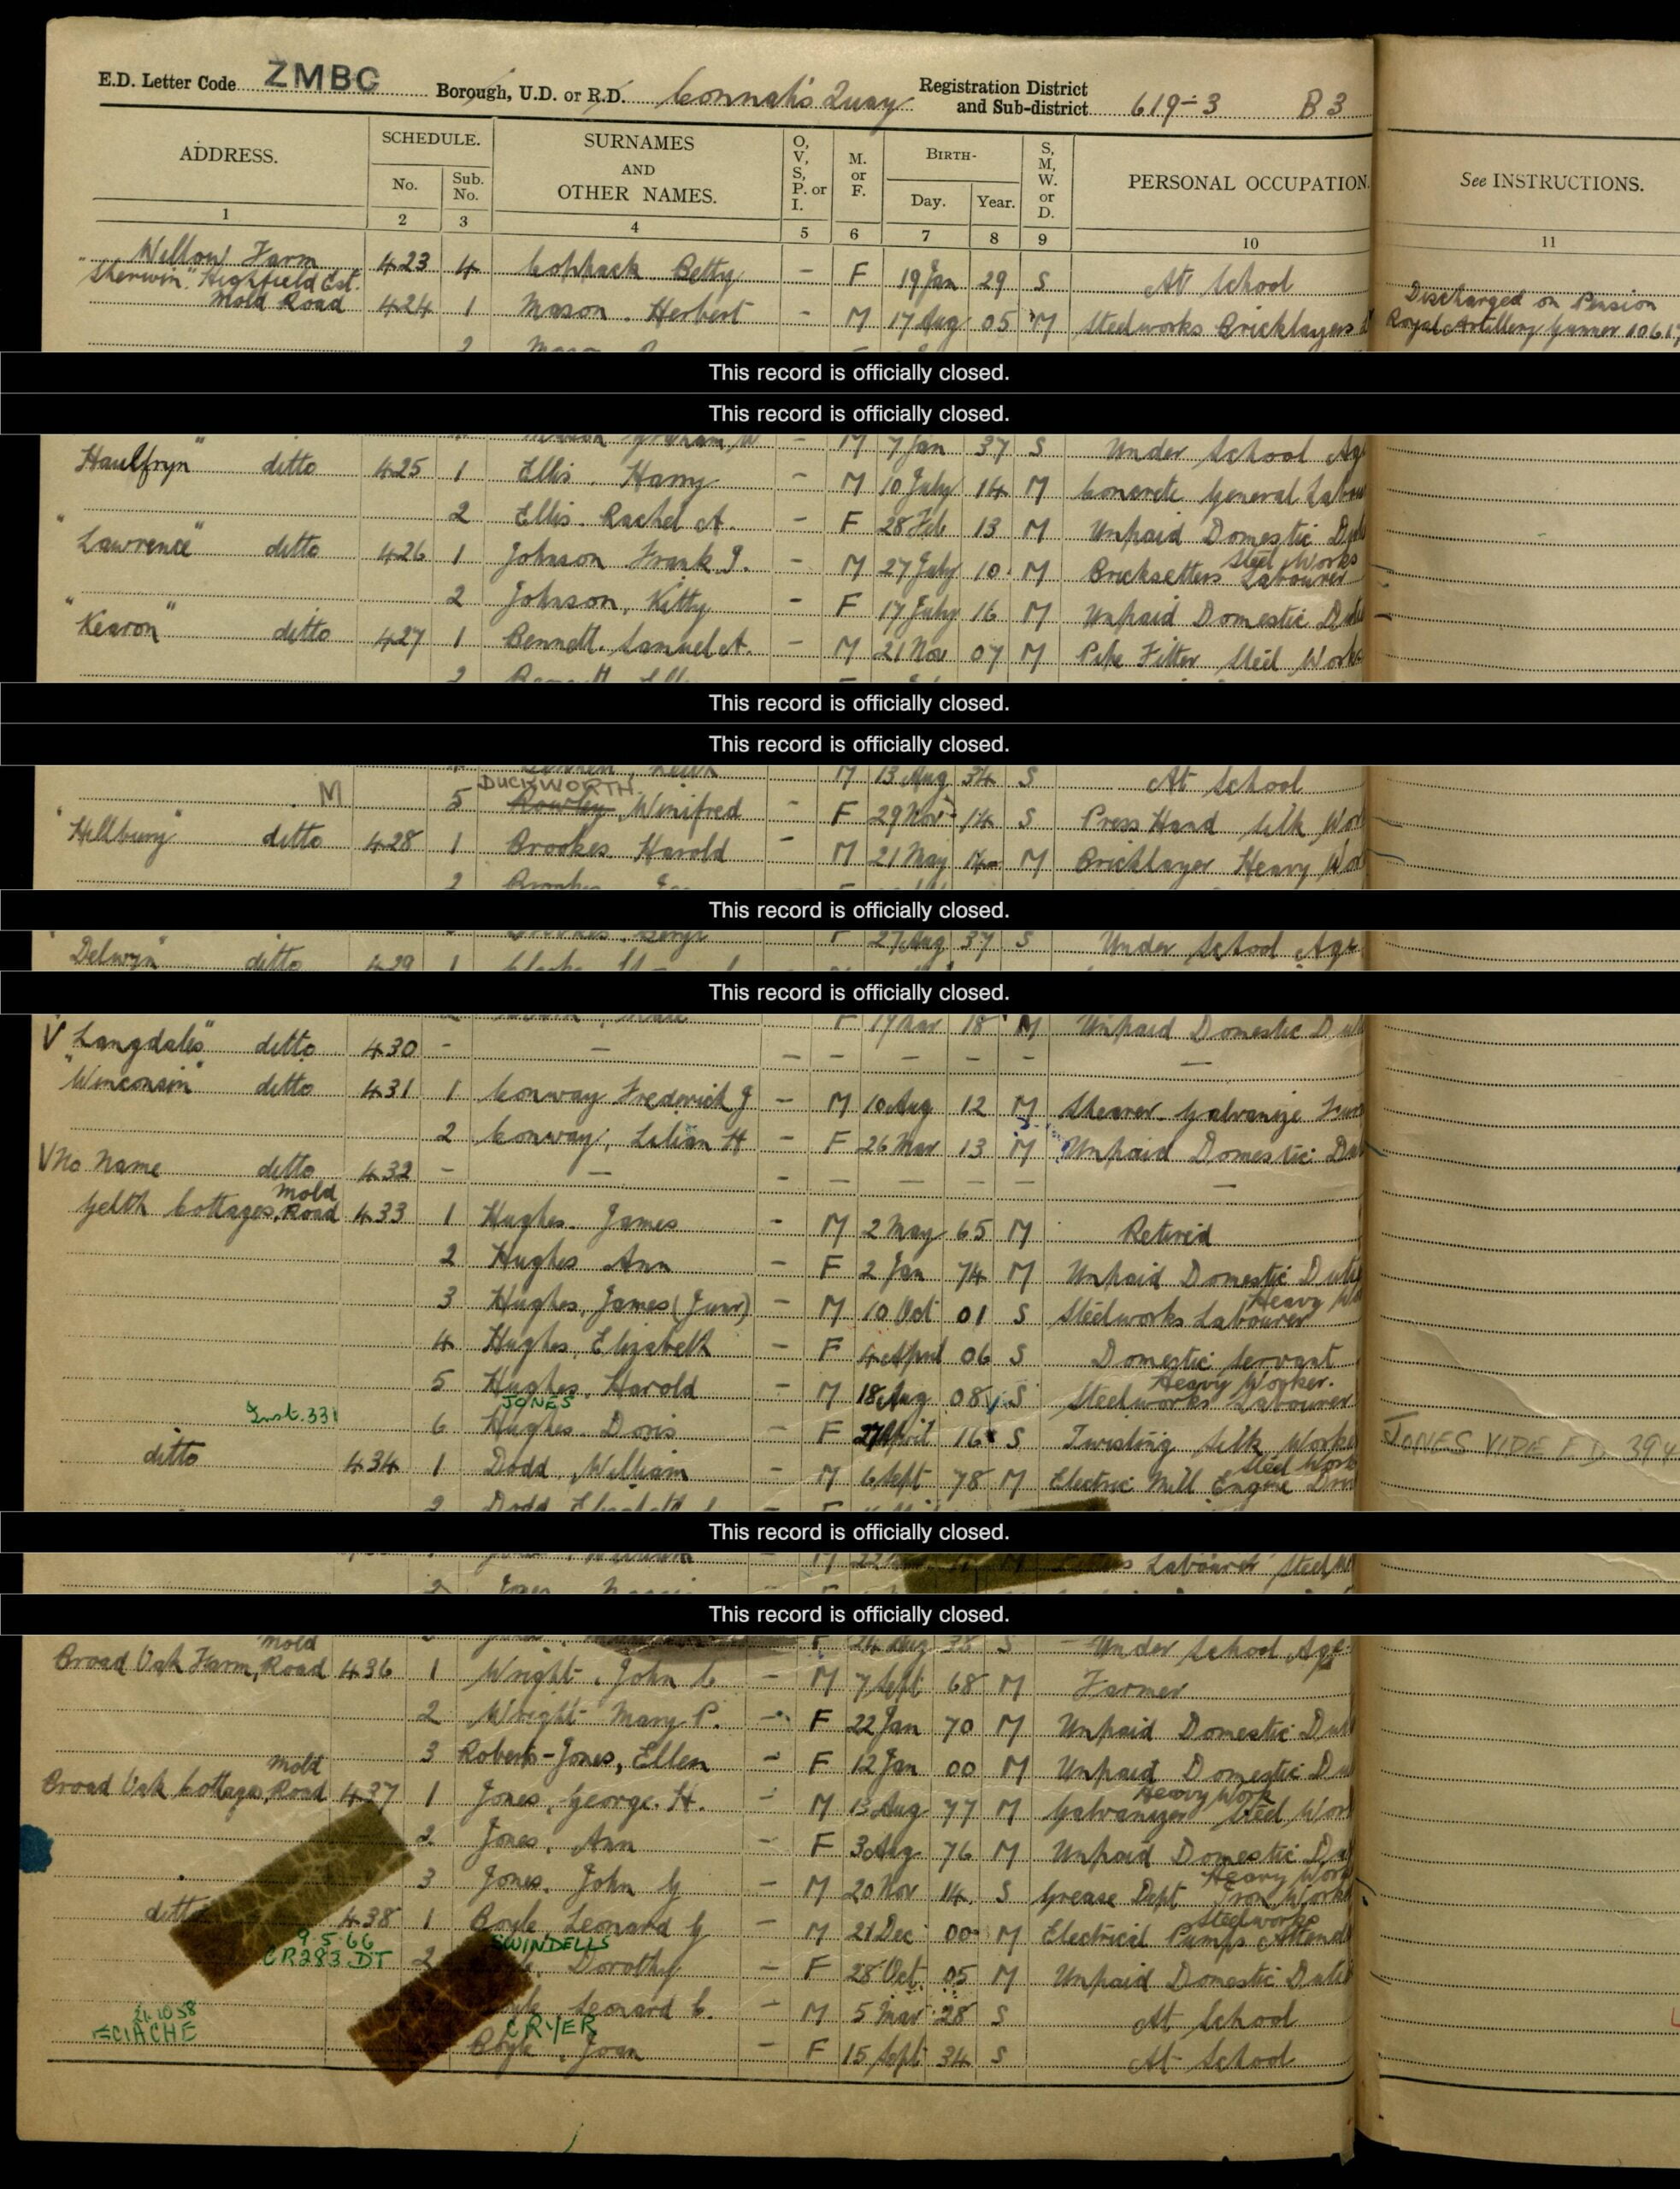 E.D. Letter Code ZMBC Borough, U.D. or R.D. Connah's Quay Registration District and Sub-district 619-3 B3
ADDRESS. SCHEDULE. SURNAMES AND OTHER NAMES. O, V, S, P. or I. M. or F. BIRTH- S, M, W. or D. PERSONAL OCCUPATION. See INSTRUCTIONS.
No. Sub. No. Day. Year.
1 2 3 4 5 6 7 8 9 10 11
Willow Farm 423 4 Coppack Betty - F 19 Jan 29 S At School
"Sherwin" Highfield Est.
Mold Road 424 1 Mason. Herbert - M 17 Aug 05 M Steelworks Bricklayers
Discharged on Pension
Royal Artillery Gunner
2
This record is officially closed.
This record is officially closed.
M 7 Jan 37 S Under School Age
"Haulfryn" ditto 425 1 Ellis. Harry - M 10 July 14 M Concrete General Labour
2 Ellis. Rachel A. - F 28 Feb 13 M Unpaid Domestic Duti
"Lawrence" ditto 426 1 Johnson Frank J. - M 27 July 10 M Bricksetters Labourer Steel Works
2 Johnson, Kitty - F 17 July 16 M Unpaid Domestic Duti
"Kearon" ditto 427 1 Bennett. Samuel A. - M 21 Nov 07 M Pipe Fitter Steel Works
2 Bennett
This record is officially closed.
This record is officially closed.
M 13 Aug 34 S At School
DUCKWORTH
M 5 Rowley Winifred - F 29 Nov 14 S Press Hand Silk Wor
"Hillbury" ditto 428 1 Brookes Harold - M 21 May M Bricklayer Heavy Wor
2 Brookes
This record is officially closed.
F 27 Aug 37 S Under School Age
"Delwyn" ditto 429 1
This record is officially closed.
F 19 Mar 18 M Unpaid Domestic Duti
V "Langdale" ditto 430 - - - - - - - -
"Winconsin" ditto 431 1 Conway Frederick J - M 10 Aug 12 M Shearer Galvanize
2 Conway, Lilian H - F 26 Mar 13 M Unpaid Domestic Dut
V No Name ditto 432 - - - - - - - -
Mold
Gelth Cottages, Road 433 1 Hughes. James - M 2 May 65 M Retired
2 Hughes Ann - F 2 Jan 74 M Unpaid Domestic Duti
3 Hughes, James (Junr) - M 10 Oct 01 S Steelworks Labourer Heavy Wo
4 Hughes, Elizabeth - F 4 April 06 S Domestic Servant
5 Hughes, Harold - M 18 Aug 08 S Steelworks Labourer Heavy Worker.
JONES
Inst. 331 6 Hughes. Doris - F 27 April 16 S Twisting Silk Worke JONES VIDE E.D. 394
ditto 434 1 Dodd, William - M 6 Sept 78 M Electric Mill Engine Driv Steel Work
2 Dodd Elizabeth
This record is officially closed.
M Labourer Steel
2 Jones
This record is officially closed.
F 24 Aug 38 S Under School Age
Mold
Broad Oak Farm, Road 436 1 Wright. John C - M 7 Sept 68 M Farmer
2 Wright Mary P. - F 22 Jan 70 M Unpaid Domestic Duti
3 Roberts-Jones, Ellen - F 12 Jan 00 M Unpaid Domestic Du
Mold
Broad Oak Cottages, Road 437 1 Jones, George. H. - M 13 Aug 77 M Galvanizer Steel Wor Heavy Work
2 Jones, Ann - F 3 Aug 76 M Unpaid Domestic Du
3 Jones, John G - M 20 Nov 14 S Grease Dept. Iron Works Heavy Work
ditto 438 1 Boyle Leonard G - M 21 Dec 00 M Electrical Pumps Attend Steelworks
9.5.66 SWINDELLS
CR283 DT 2 Dorothy - F 28 Oct 05 M Unpaid Domestic Duti
Leonard C. - M 5 Mar 28 S At School
21.10.58 CRYER
Boyle, Joan - F 15 Sept 34 S At School